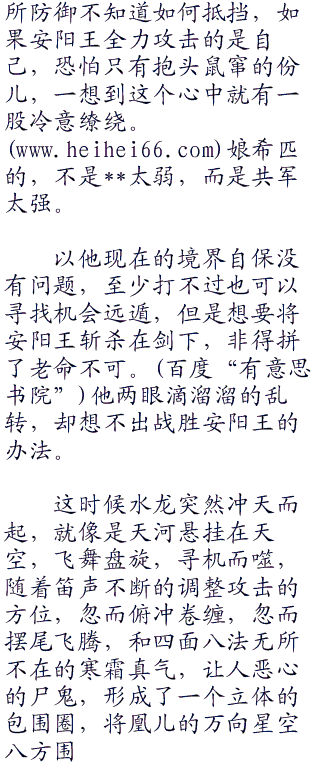 所防御不知道如何抵挡，如
果安阳王全力攻击的是自
己，恐怕只有抱头鼠窜的份
儿，一想到这个心中就有一
股冷意缭绕。
(www.heihei66.com)娘希匹
的，不是**太弱，而是共军
太强。
以他现在的境界自保没
有问题，至少打不过也可以
寻找机会远遁，但是想要将
安阳王斩杀在剑下，非得拼
了老命不可。(百度“有意思
书院”)他两眼滴溜溜的乱
转，却想不出战胜安阳王的
办法。
这时候水龙突然冲天而
起，就像是天河悬挂在天
空，飞舞盘旋，寻机而噬，
随着笛声不断的调整攻击的
方位，忽而俯冲卷缠，忽而
摆尾飞腾，和四面八法无所
不在的寒霜真气，让人恶心
的尸鬼，形成了一个立体的
包围圈，将凰儿的万向星空
八方围